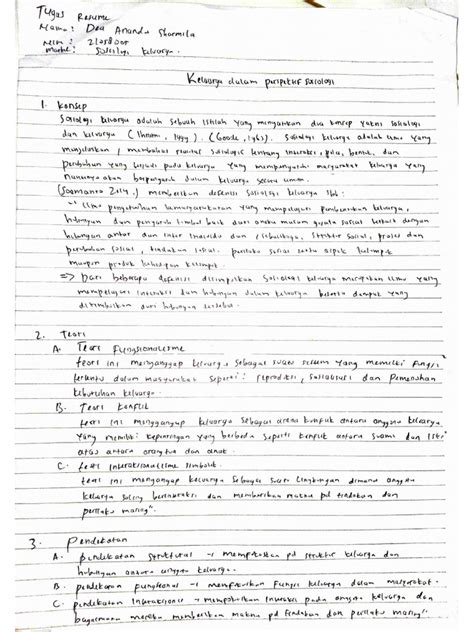 Tugas Resume
Nama : Dea Ananda Sharmila
Nim :
Matkul : Sosiologi Keluarga.
Keluarga dalam perspektif sosiologi
1. Konsep
Sosiologi keluarga adalah sebuah istilah yang menyatukan dua konsep yakni sosiologi
dan keluarga (Ihrom, 1999). (Goode, 1963). Sosiologi keluarga adalah ilmu yang
menjelaskan / membahas realitas sosiologis tentang interaksi, pola, bentuk, dan
perubahan yang terjadi pada keluarga yang mempengaruhi masyarakat keluarga yang
berpengaruh dalam keluarga secara umum.
2011). memberikan definisi sosiologi keluarga sbb:
" Ilmu pengetahuan kemasyarakatan yang mempelajari pembentukan keluarga,
hubungan dan pengaruh timbal balik dari aneka macam gejala sosial terkait dengan
hubungan antar dan inter manusia dan / sebaliknya, struktur sosial, proses dan
perubahan sosial, tindakan sosial, perilaku sosial aspek kelompok
maupun produk kehidupan kelompok
=> Dari beberapa definisi disimpulkan sosiologi keluarga merupakan ilmu yang
mempelajari interaksi dan hubungan dalam keluarga beserta dampak yang
ditimbulkan dari hubungan tersebut.
2. Teori
A. Teori Fungsionalisme
teori ini menganggap keluarga sebagai suatu sistem yang memiliki fungsi
tertentu dalam masyarakat seperti : reproduksi, sosialisasi dan pemenuhan
kebutuhan keluarga.
B. Teori Konflik
teori ini menganggap keluarga sebagai arena konflik antara anggota keluarga
yang memiliki kepentingan yang berbeda seperti konflik antara suami dan istri
atau antara orangtua dan anak.
C. teori Interaksionalisme simbolik.
teori ini menganggap keluarga sebagai suatu lingkungan dimana anggota
keluarga saling berinteraksi dan memberikan makna pd tindakan dan
perilaku masing".
3. Pendekatan
A. Pendekatan struktural → memfokuskan pd struktur keluarga dan
hubungan antara anggota keluarga.
B. pendekatan fungsional → memfokuskan fungsi keluarga dalam masyarakat.
C. Pendekatan Interaksionis → memfokuskan interaksi pada anggota keluarga dan
bagaimana mereka memberikan makna pd tindakan dan perilaku masing".